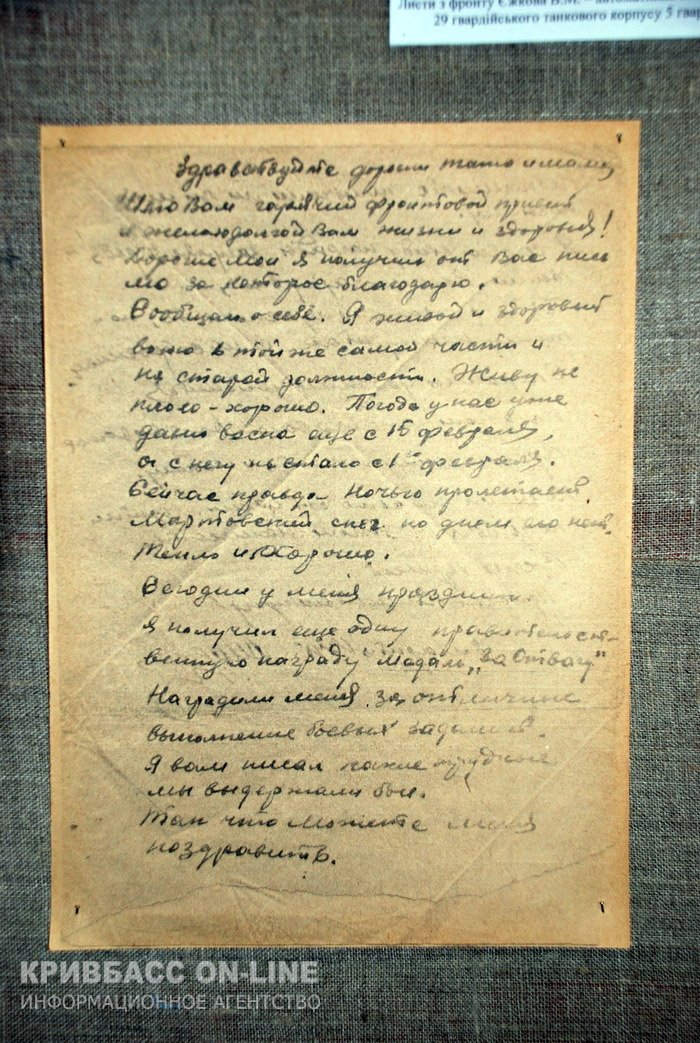 Листи з фронту Єжкова В.М. – автоматника
29 гвардійського танкового корпусу 5 гвар
Здравствуйте дороги тато и мама
Шлю Вам гарячий фронтовой привет
и желаю долгой Вам жизни и здоровья!
Хорошие мои я получил от Вас пись
мо за которое благодарю.
Вообщаю о себе. Я живой и здоровый
воюю в той же самой части и
на старой должности. Живу не
плохо - хорошо. Погода у нас уже
давно весна еще с 15 февраля,
а снегу не стало с 1го февраля.
Сейчас правда ночью пролетает
Мартовский снег но днем его нет.
Тепло и хорошо.
Сегодня у меня праздник.
Я получил еще одну правительст-
венную награду медаль „За Отвагу"
Наградили меня за отличные
выполнение боевых заданий.
Я вам писал какие трудные
мы выдержали бои.
Так что можете меня
поздравить.
КРИВБАСС ON-LINE
ИНФОРМАЦИОННОЕ АГЕНТСТВО